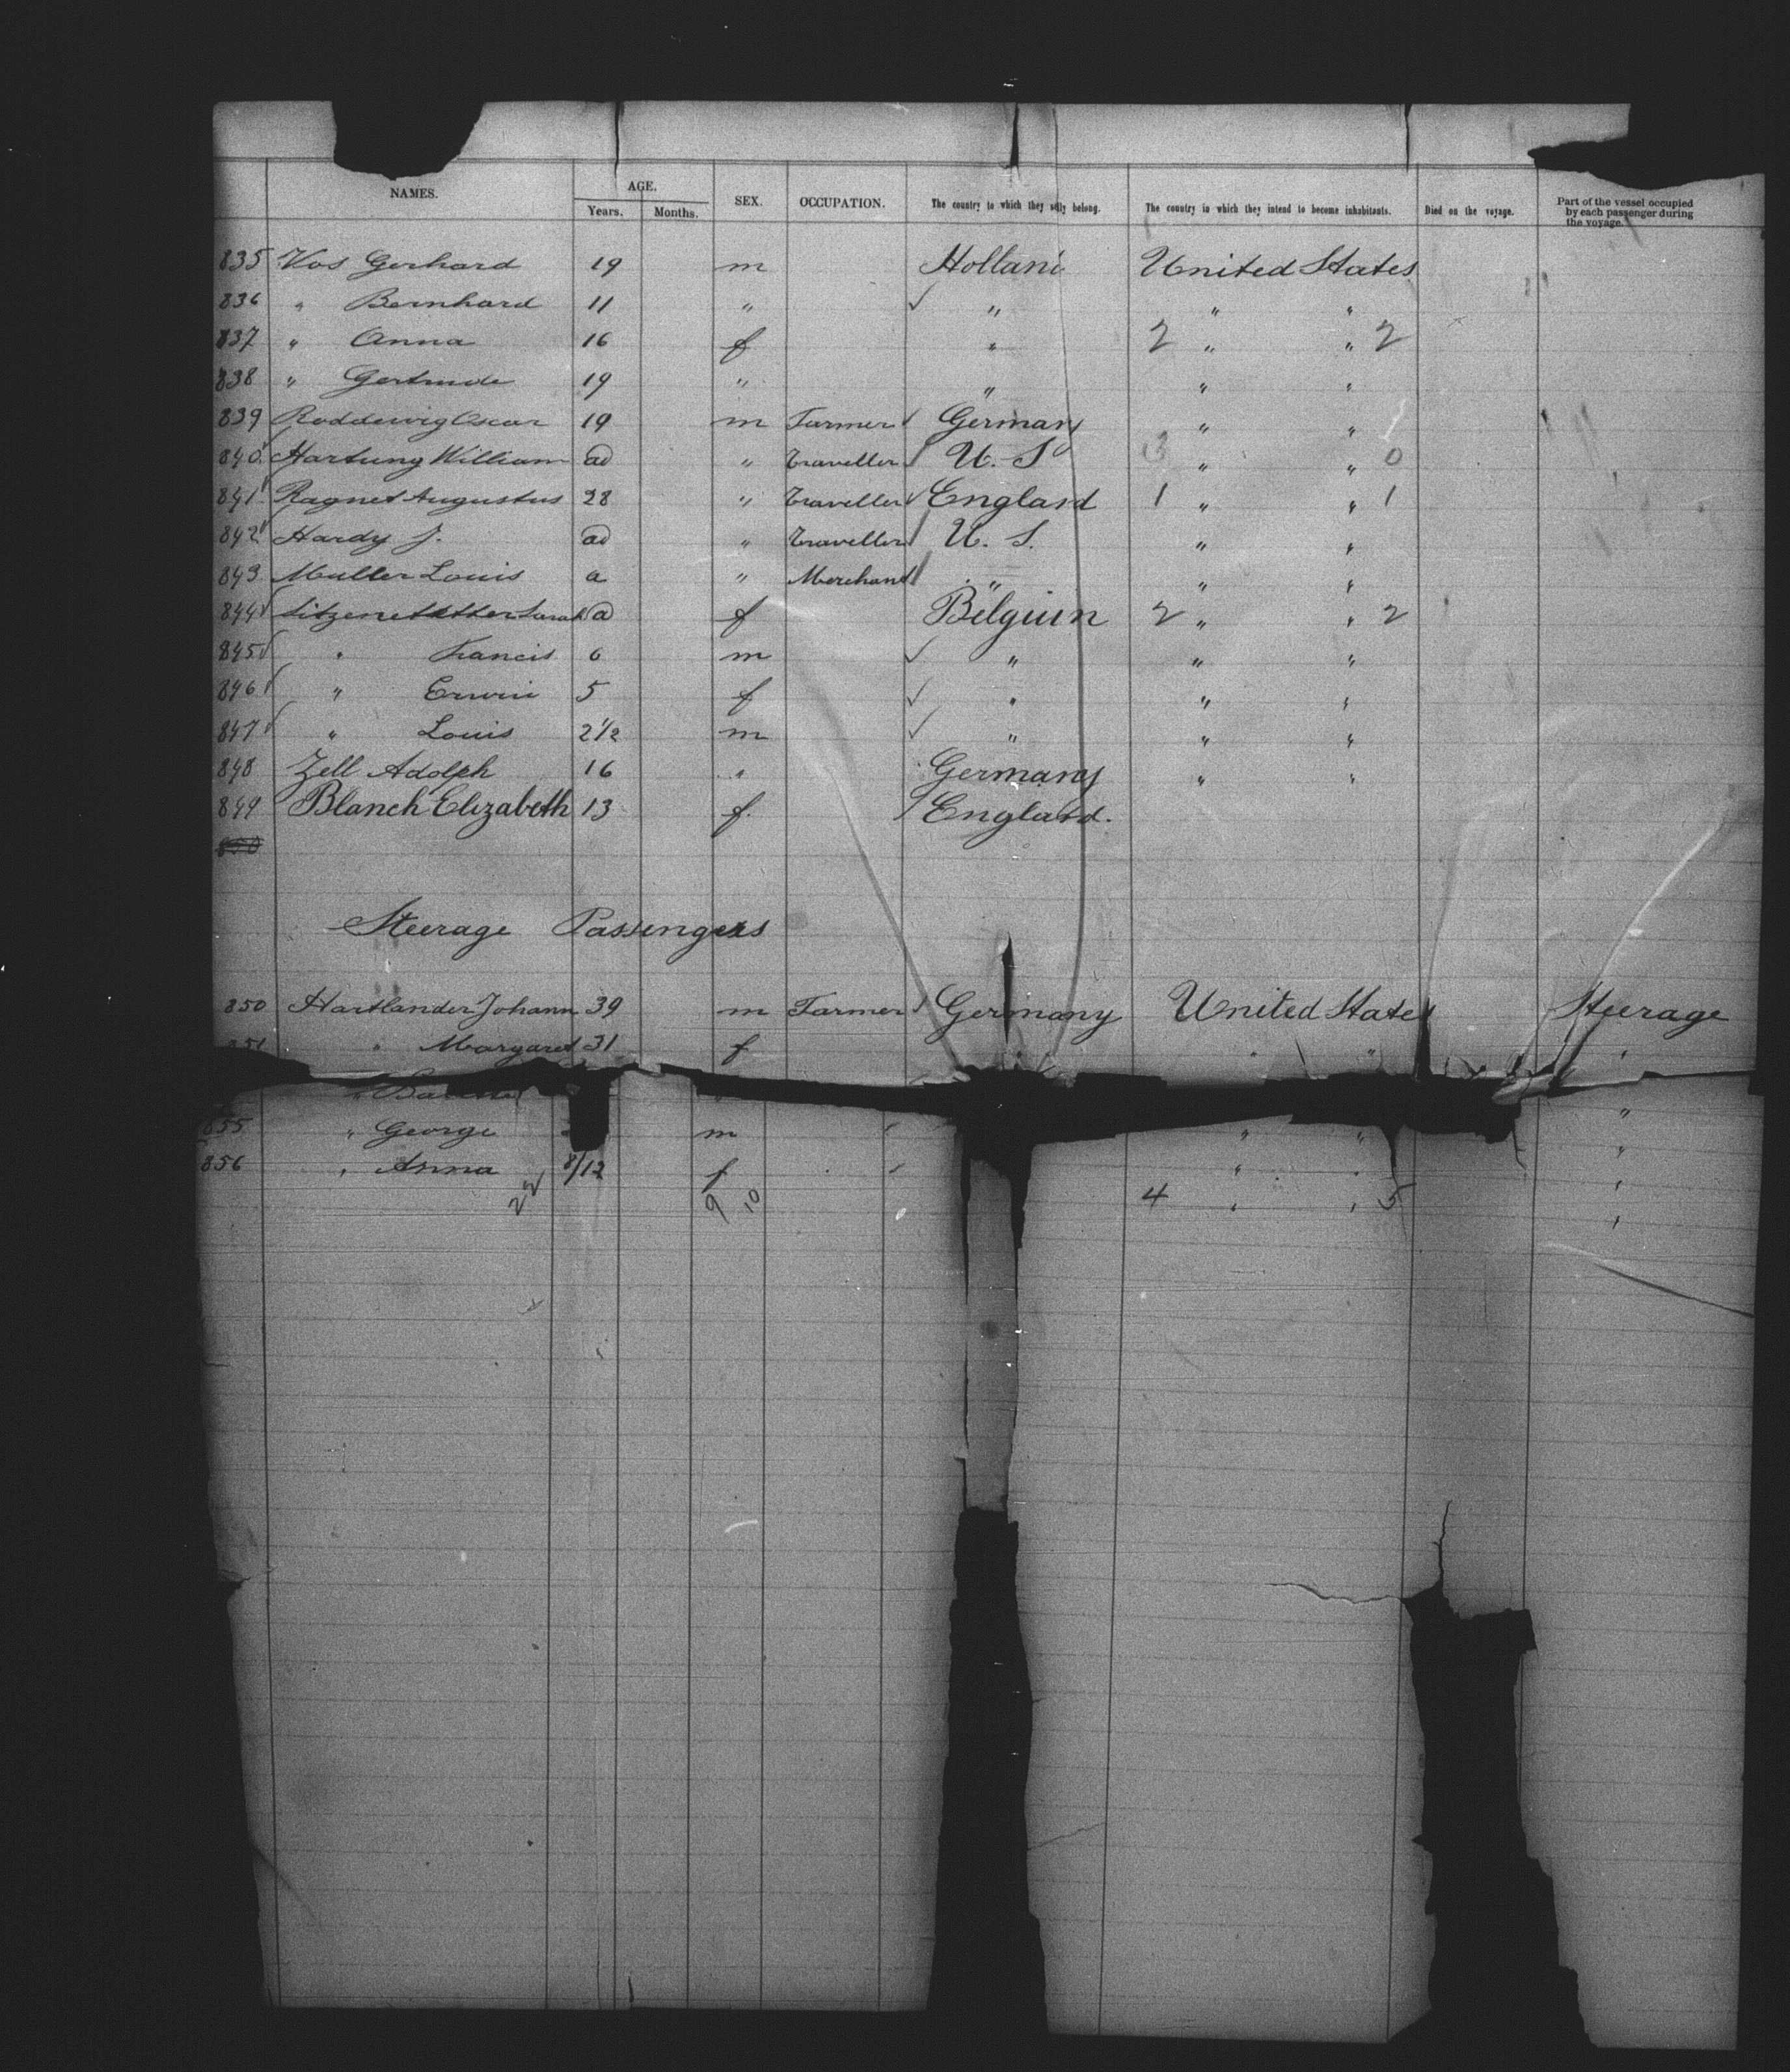 NAMES. AGE. Years. Months. SEX. OCCUPATION. The country to which they belong. The country in which they intend to become inhabitants. Died on the voyage. Part of the vessel occupied by each passenger during the voyage.
835 Vos Gerhard 19 m Holland United States
836 " Bernhard 11 " ✓ " " "
837 " Anna 16 f " 2 " " 2
838 " Gertrude 19 " " " "
839 Roddewig Oscar 19 m Farmer Germany " "
840 Hartung William ad " Traveller U. S " " 0
841 Ragnet Augustus 28 " Traveller England 1 " " 1
842 Hardy J. ad " Traveller U. S. " "
843 Muller Louis a " Merchant " " "
844 Sarah a f Belgium 2 " " 2
845 " Francis 6 m ✓ " " "
846 " Erwin 5 f ✓ " " "
847 " Louis 2 1/2 m ✓ " " "
848 Zell Adolph 16 " Germany " "
849 Blanch Elizabeth 13 f. England.
850
Steerage Passengers
850 Hartlander Johann 39 m Farmer Germany United States Steerage
851 " Margaret 31 f " " "
"
855 " George m " " "
856 " Anna 8/12 f " " "
22 9 10 4 " " 5 "